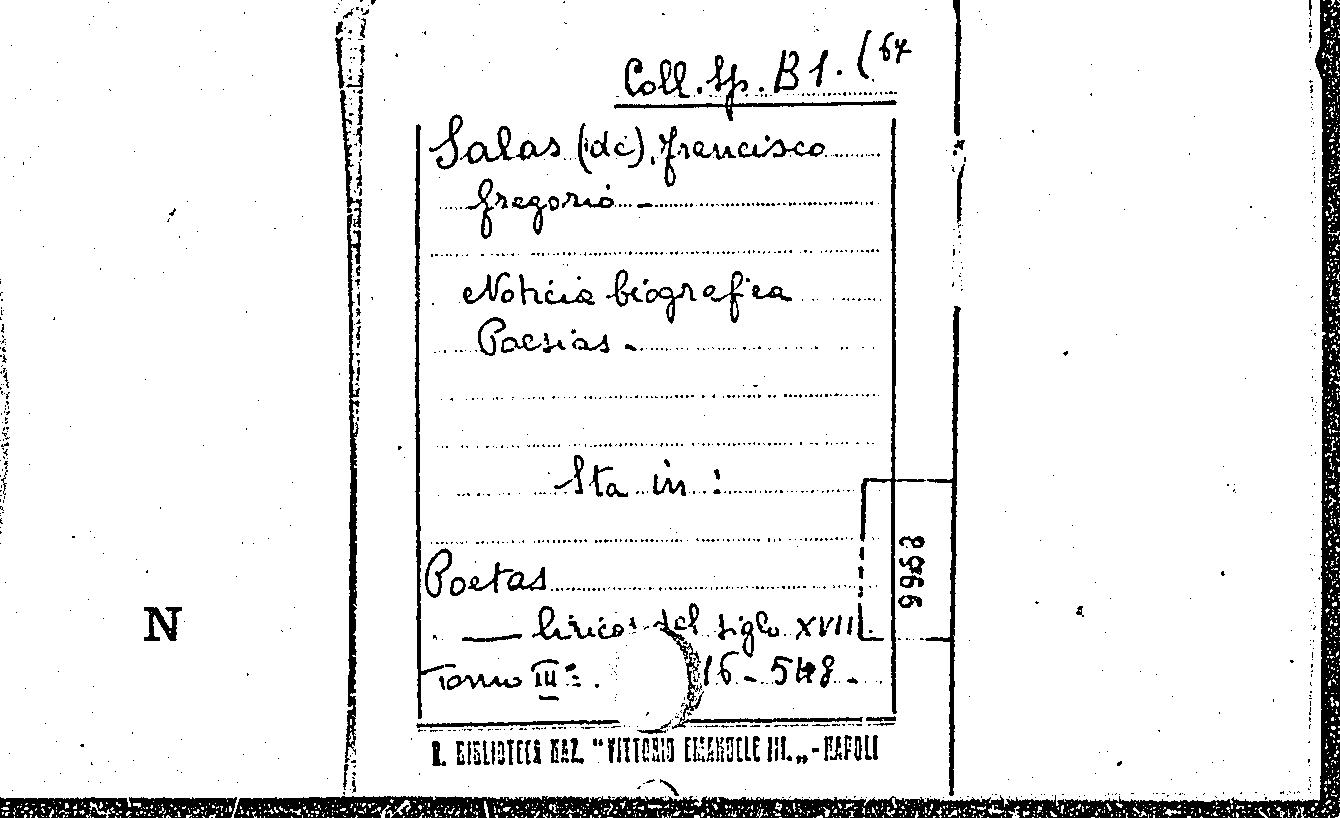 Coll. Sp. B 1. (67
Salas (de), Francisco
Gregorio -
Noticia biografica
Poesias -
Sta in :
Poetas
— liricos del siglo XVIII.
Tomo III°: . 16 - 548 -
9968
N
R. BIBLIOTECA NAZ. "VITTORIO EMANUELE III." - NAPOLI